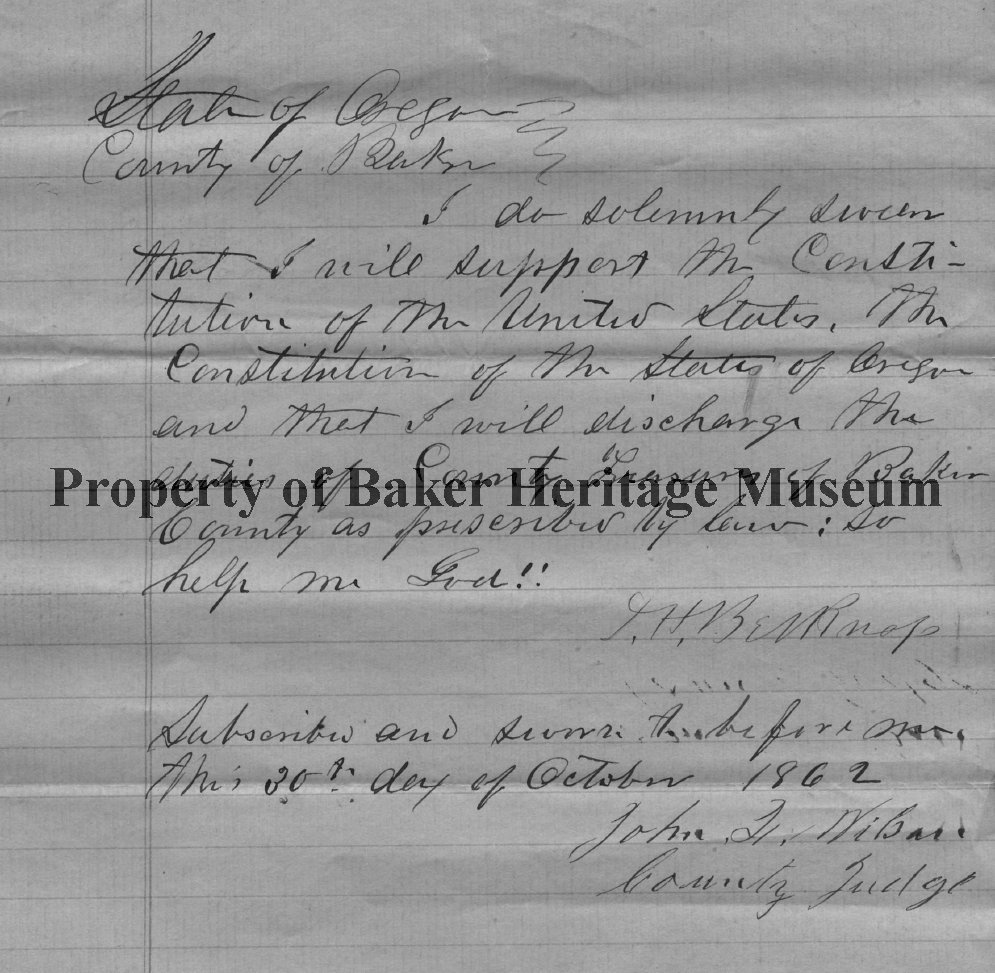 State of Oregon
County of Baker
I do solemnly swear
that I will support the Consti-
tution of the United States, the
Constitution of the State of Oregon
and that I will discharge the
duties of County Treasurer of Baker
Property of Baker Heritage Museum
County as prescribed by law: so
help me God!!
H. Belknap
Subscribed and sworn to before me
this 30th day of October 1862
John Wilson
County Judge